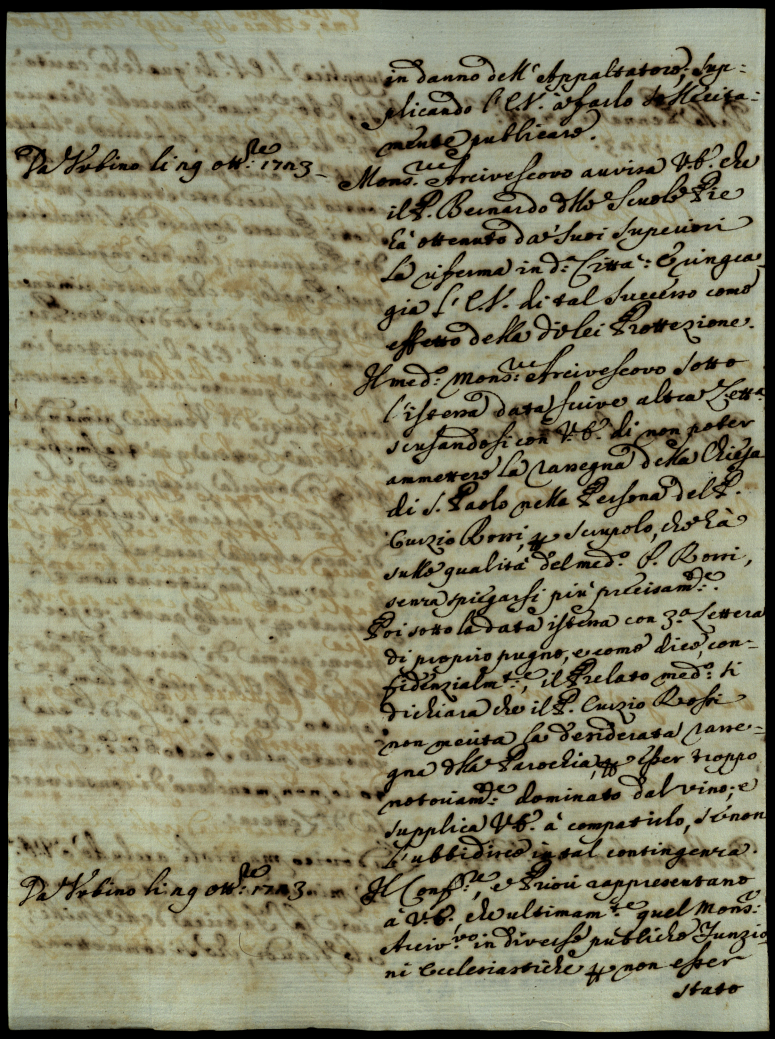 in danno dell' Appaltatore, sup-
plicando l'E.V. à farlo sollecita-
mente publicare.
Da Urbino li 29 ott.re 1723-
Mons.re Arcivescovo avvisa V.E. che
il P. Bernardo delle Scuole Pie
hà ottenuto da' suoi Superiori
la riferma in d.a Città: e ringra-
zia l'E.V. di tal successo come
effetto della di lei Protezione.
Il med.o Mons.re Arcivescovo sotto
l'istessa data scrive altra Lett.a
scusandosi con V.E. di non poter
ammettere la rassegna della Chiesa
di S. Paolo nella Persona del P.
Curzio Rossi, per scrupolo, che hà
sulle qualità del med.o P. Rossi,
senza spiegarsi più precisam.te.
Poi sotto la data istessa con 3.a Lettera
di proprio pugno, e come dice, con-
fidenzialm.te, il Prelato med.o si
dichiara che il P. Curzio Rossi
non merita la desiderata rasse-
gna della Parochia, per esser troppo
notoriam.te dominato dal vino; e
supplica V.E. à compatirlo, se non
l'ubbidisce in tal contingenza.
Da Urbino li 29 ott.re 1723.
Il Conf.re, e Priori rappresentano
à V.E. che ultimam.te quel Mons.
Arciv.vo in diverse publiche Funzio
ni Ecclesiastiche per non esser
stato